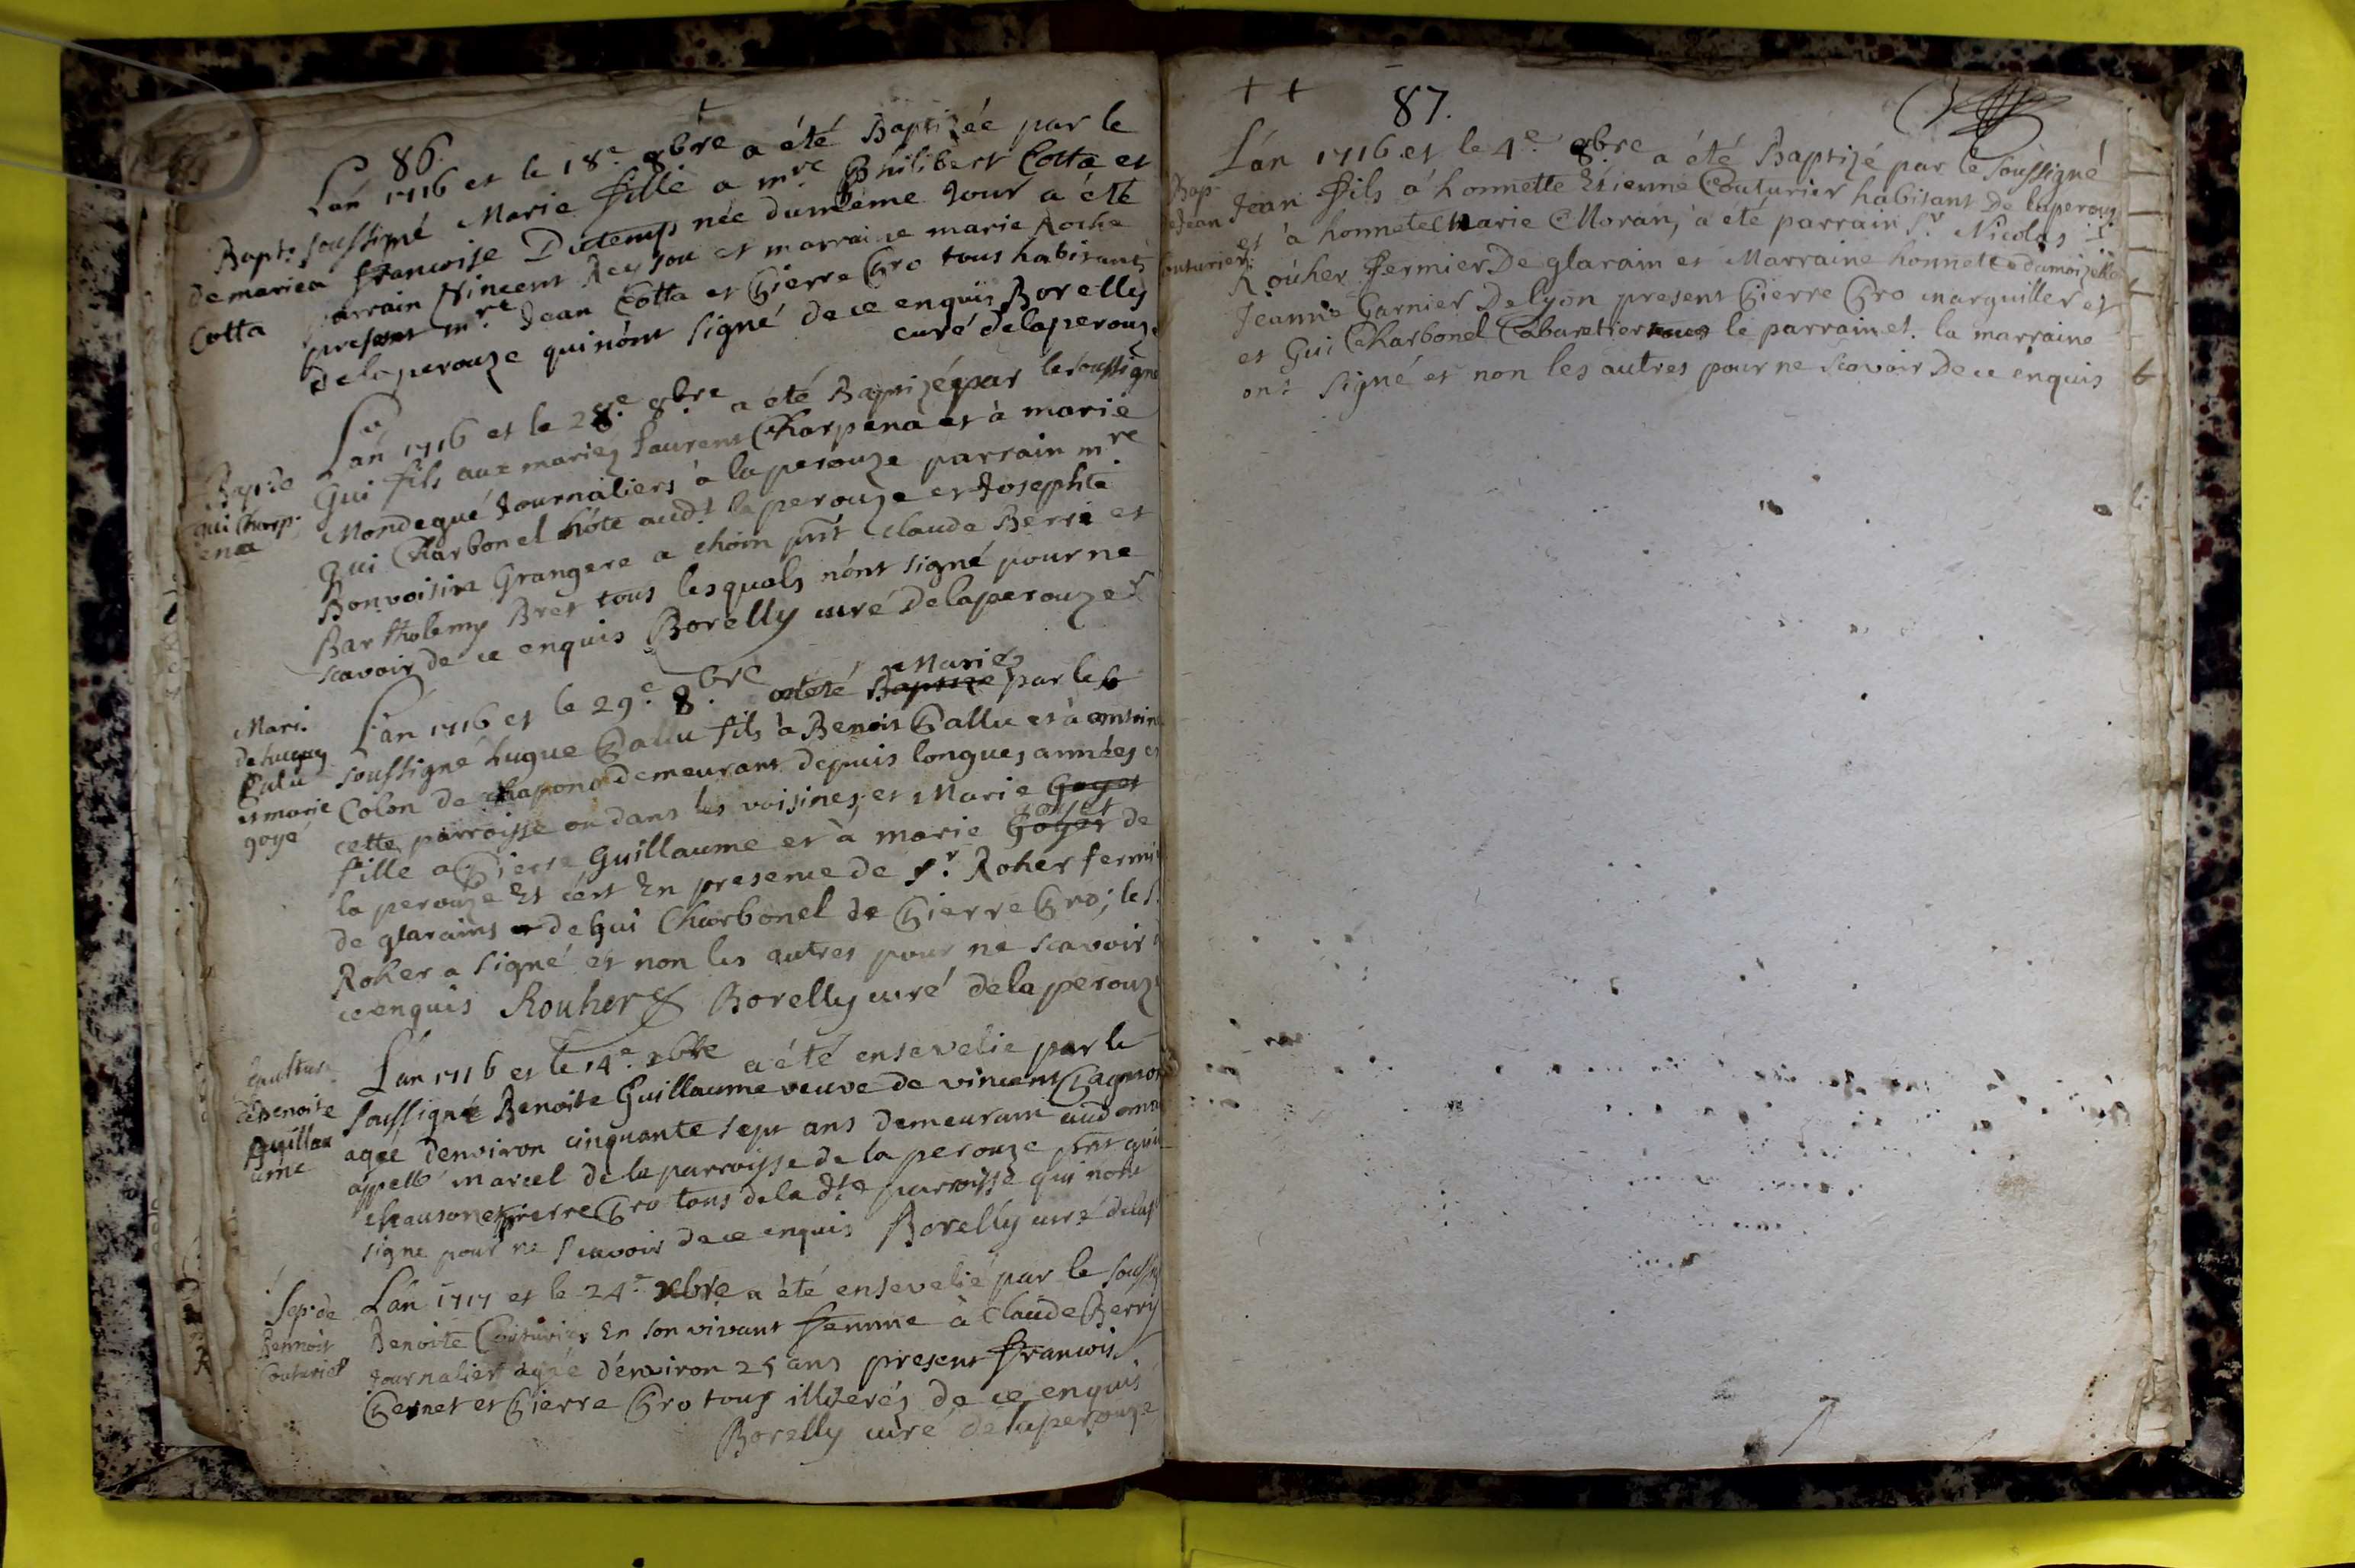 86.
L'án 1716 et le 18e. 8bre a été Baptizée par le
Bapt. soussigné Marie fille a mre Philibert Cotta et
de marie a francoise Dutemps née dumême Jour a été
Cotta parrain Vincent Reysou et marraine marie Roche
present mre. Jean Cotta et Pierre Gro tous habitants
de laperouze qui nónt signé de ce enquis Borelly
curé delaperouze
L'án 1716 et le 28e. 8bre a été Baptizé par le soussigné
Bap: de Gui fils aux mariez Laurent Charpena et à marie
gui Charp- Mondegué Journaliers à la perouze parrain mre
ena Gui Charbonel hóte audt la perouze et Josephte
Bonvoisin Grangere a choin prñt Claude Berri et
Bartholemy Bret tous lesquals nónt signé pour ne
scavoir de ce enquis Borelly curé Delaperouze
Mariéz
L'án 1716 et le 29e. 8bre. a été Baptizé par le s
Mari.
de hugug soussigné hugue Pallu fils à Benoit Pallu et à antoin
Palu Colon de chapono demeurant depuis longues années e
et marie cette parroisse ou dans les voisines; et Marie Goyet
goyé fille a Pierre Guillaume et à marie Goyet Goyet de
la perouze Et cért En presence de sr. Roher fermi
de glarains et de Gui Charbonel de Pierre Gro; le s.
Roher a signé et non les autres pour ne scavoir
ce enquis Rouher Borelly curé dela perouz
L'án 1716 et le 14e. xbre a été ensevelie par le
de Benoite soussigné Benoite Guillaume veuve de vincent Pagnon
Guillau agée d'environ cinquante sept ans demeurant aud
ume appellé marcel de la parroisse de la perouze prñt gui
chauson et pierre Gro tous de la dte parroisse qui nont
signe pour ne scavoir de ce enquis Borelly curé delap
Sep: de L'án 1717 et le 24e xbre a été ensevelie par le souss
Bennoit Benoite Couturier En son vivant femme à Claude Berry
Couturier Journalier agée d'énviron 25 ans present francois
Pernet et Pierre Gro tous illiterés de ce enquis
Borelly curé de laperouze
++ 87.
L'án 1716 et le 4e. 8bre a été Baptizé par le soussigné
Bap. Jean fils á honnette Etienne Couturier habitant De laperouz
Jean et à honnete Marie Moran, a eté parrain Sr. Nicolas
Couturier. Roúher fermier De glarain et Marraine honnette damoizelle
Jeanne Garnier De lyon present Pierre Gro marguiller et
et Gui Charbonel Cabaretier le parrain et la marraine
ont signé et non les autres pour ne scavoir De ce enquis